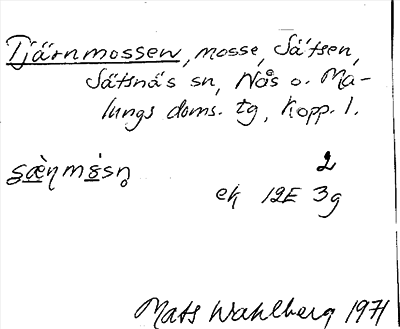 Tjärnmossen, mosse, Sätsen,
Sätsnäs sn, Nås o. Ma-
lungs doms. tg, Kopp. l.
2
ek 12E 3g
Mats Wahlberg 1971